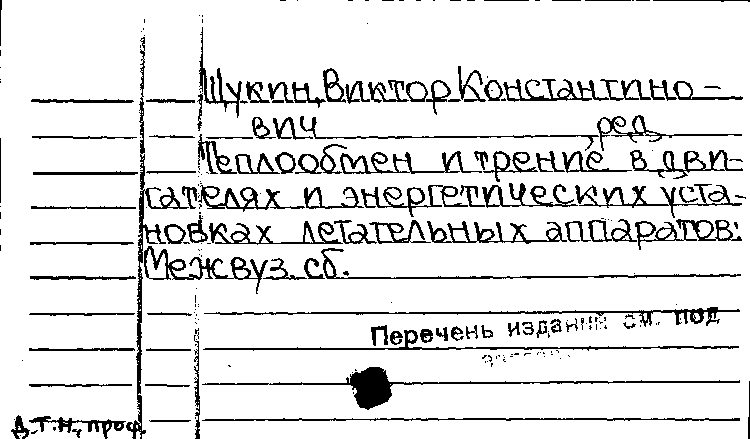 Щукин, Виктор Константино-
вич , ред.
Теплообмен и трение в дви-
гателях и энергетических уста-
новках летательных аппаратов:
Межвуз. сб.
Перечень изданий см. под
Д.Т.Н., проф.